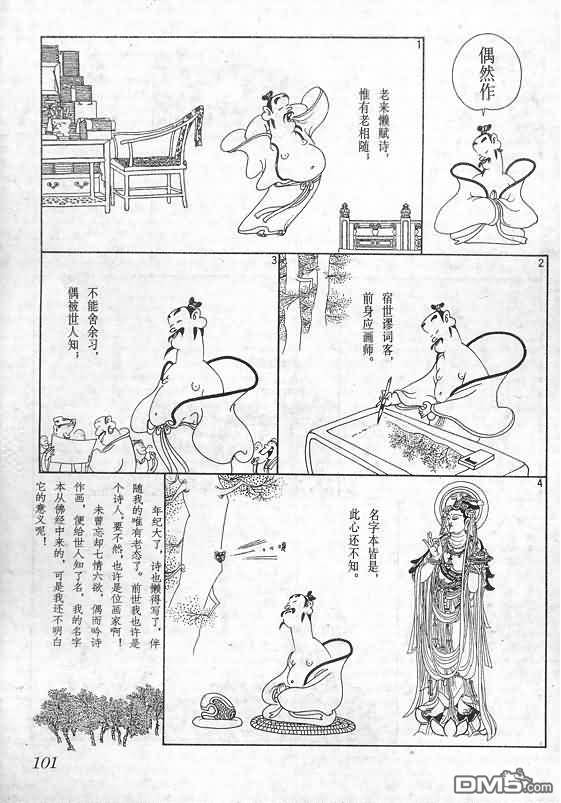 偶然作
1
老来懒赋诗，
惟有老相随；
2
宿世谬词客，
前身应画师。
3
不能舍余习，
偶被世人知；
4
名字本皆是，
此心还不知。
年纪大了，诗也懒得写了，伴
随我的唯有老态了。前世我也许是
个诗人，要不然，也许是位画家啊！
未曾忘却七情六欲，偶而吟诗
作画，便给世人知了名，我的名字
本从佛经中来的，可是我还不明白
它的意义呢！
101
DM5.com